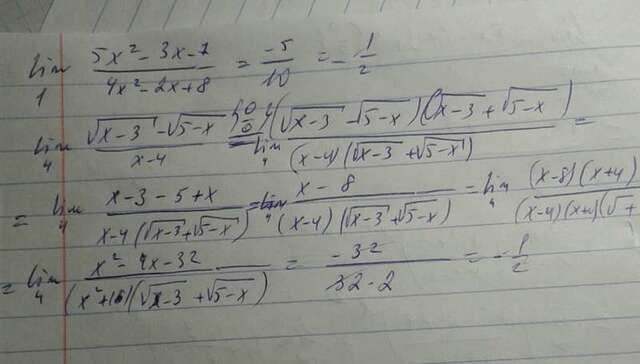 lim 1 (5x² - 3x - 7)/(4x² - 2x + 8) = -5/10 = -1/2
lim 4 (√x-3 - √5-x)/(x-4) {0/0} = lim 4 ((√x-3 - √5-x)(√x-3 + √5-x))/((x-4)(√x-3 + √5-x)) =
= lim 4 (x-3-5+x)/(x-4(√x-3 + √5-x)) = lim 4 (x-8)/((x-4)(√x-3 + √5-x)) = lim 4 ((x-8)(x+4))/((x-4)(x+4)(√ +
= lim 4 (x² - 4x - 32)/((x²+16)(√x-3 + √5-x)) = -32/(32·2) = -1/2